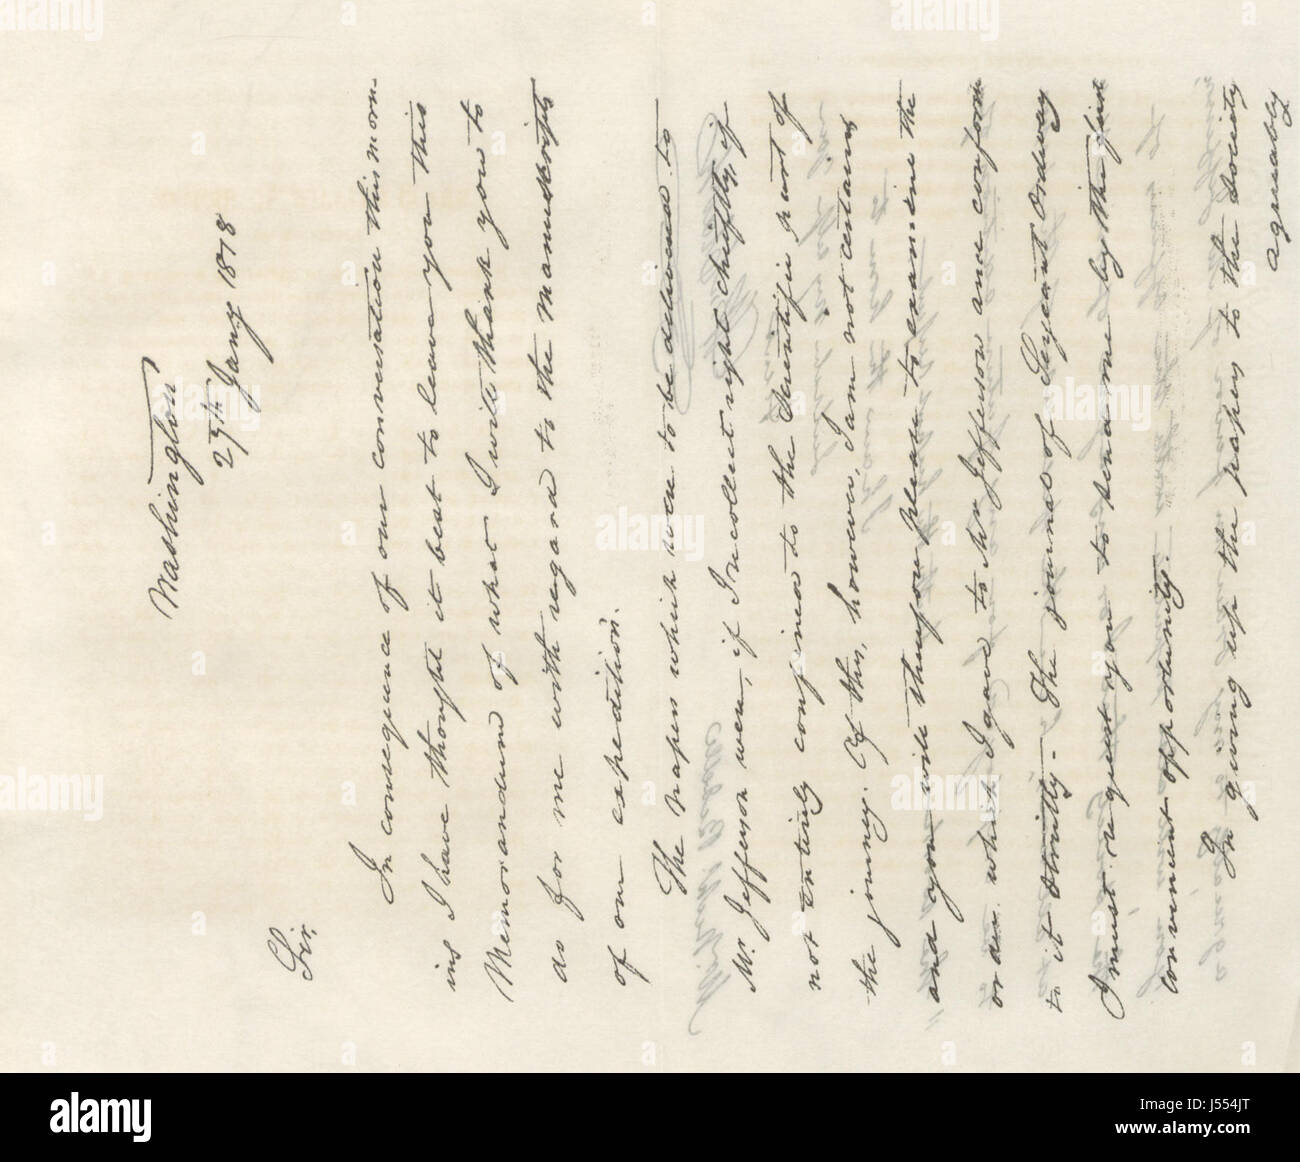 Washington
27th Jany 1878
Sir,
In consequence of our conversation this morn-
ing I have thought it best to leave you this
Memorandum of what I will thank you to
do for me with regard to the manuscripts
of our expedition.
The papers which were to be delivered to
Mr. Jefferson were, if I recollect right chiefly, if
not entirely confined to the Scientific part of
the journey. Of this, however, I am not certain,
and you will therefore please to examine the
order which I gave to Mr Jefferson and conform
to it strictly - The journal of Serjeant Ordway
I must request you to send me by the first
convenient opportunity.
In giving up the papers to the Society
agreeably
alamy
alamy
Image ID: J554JT
www.alamy.com